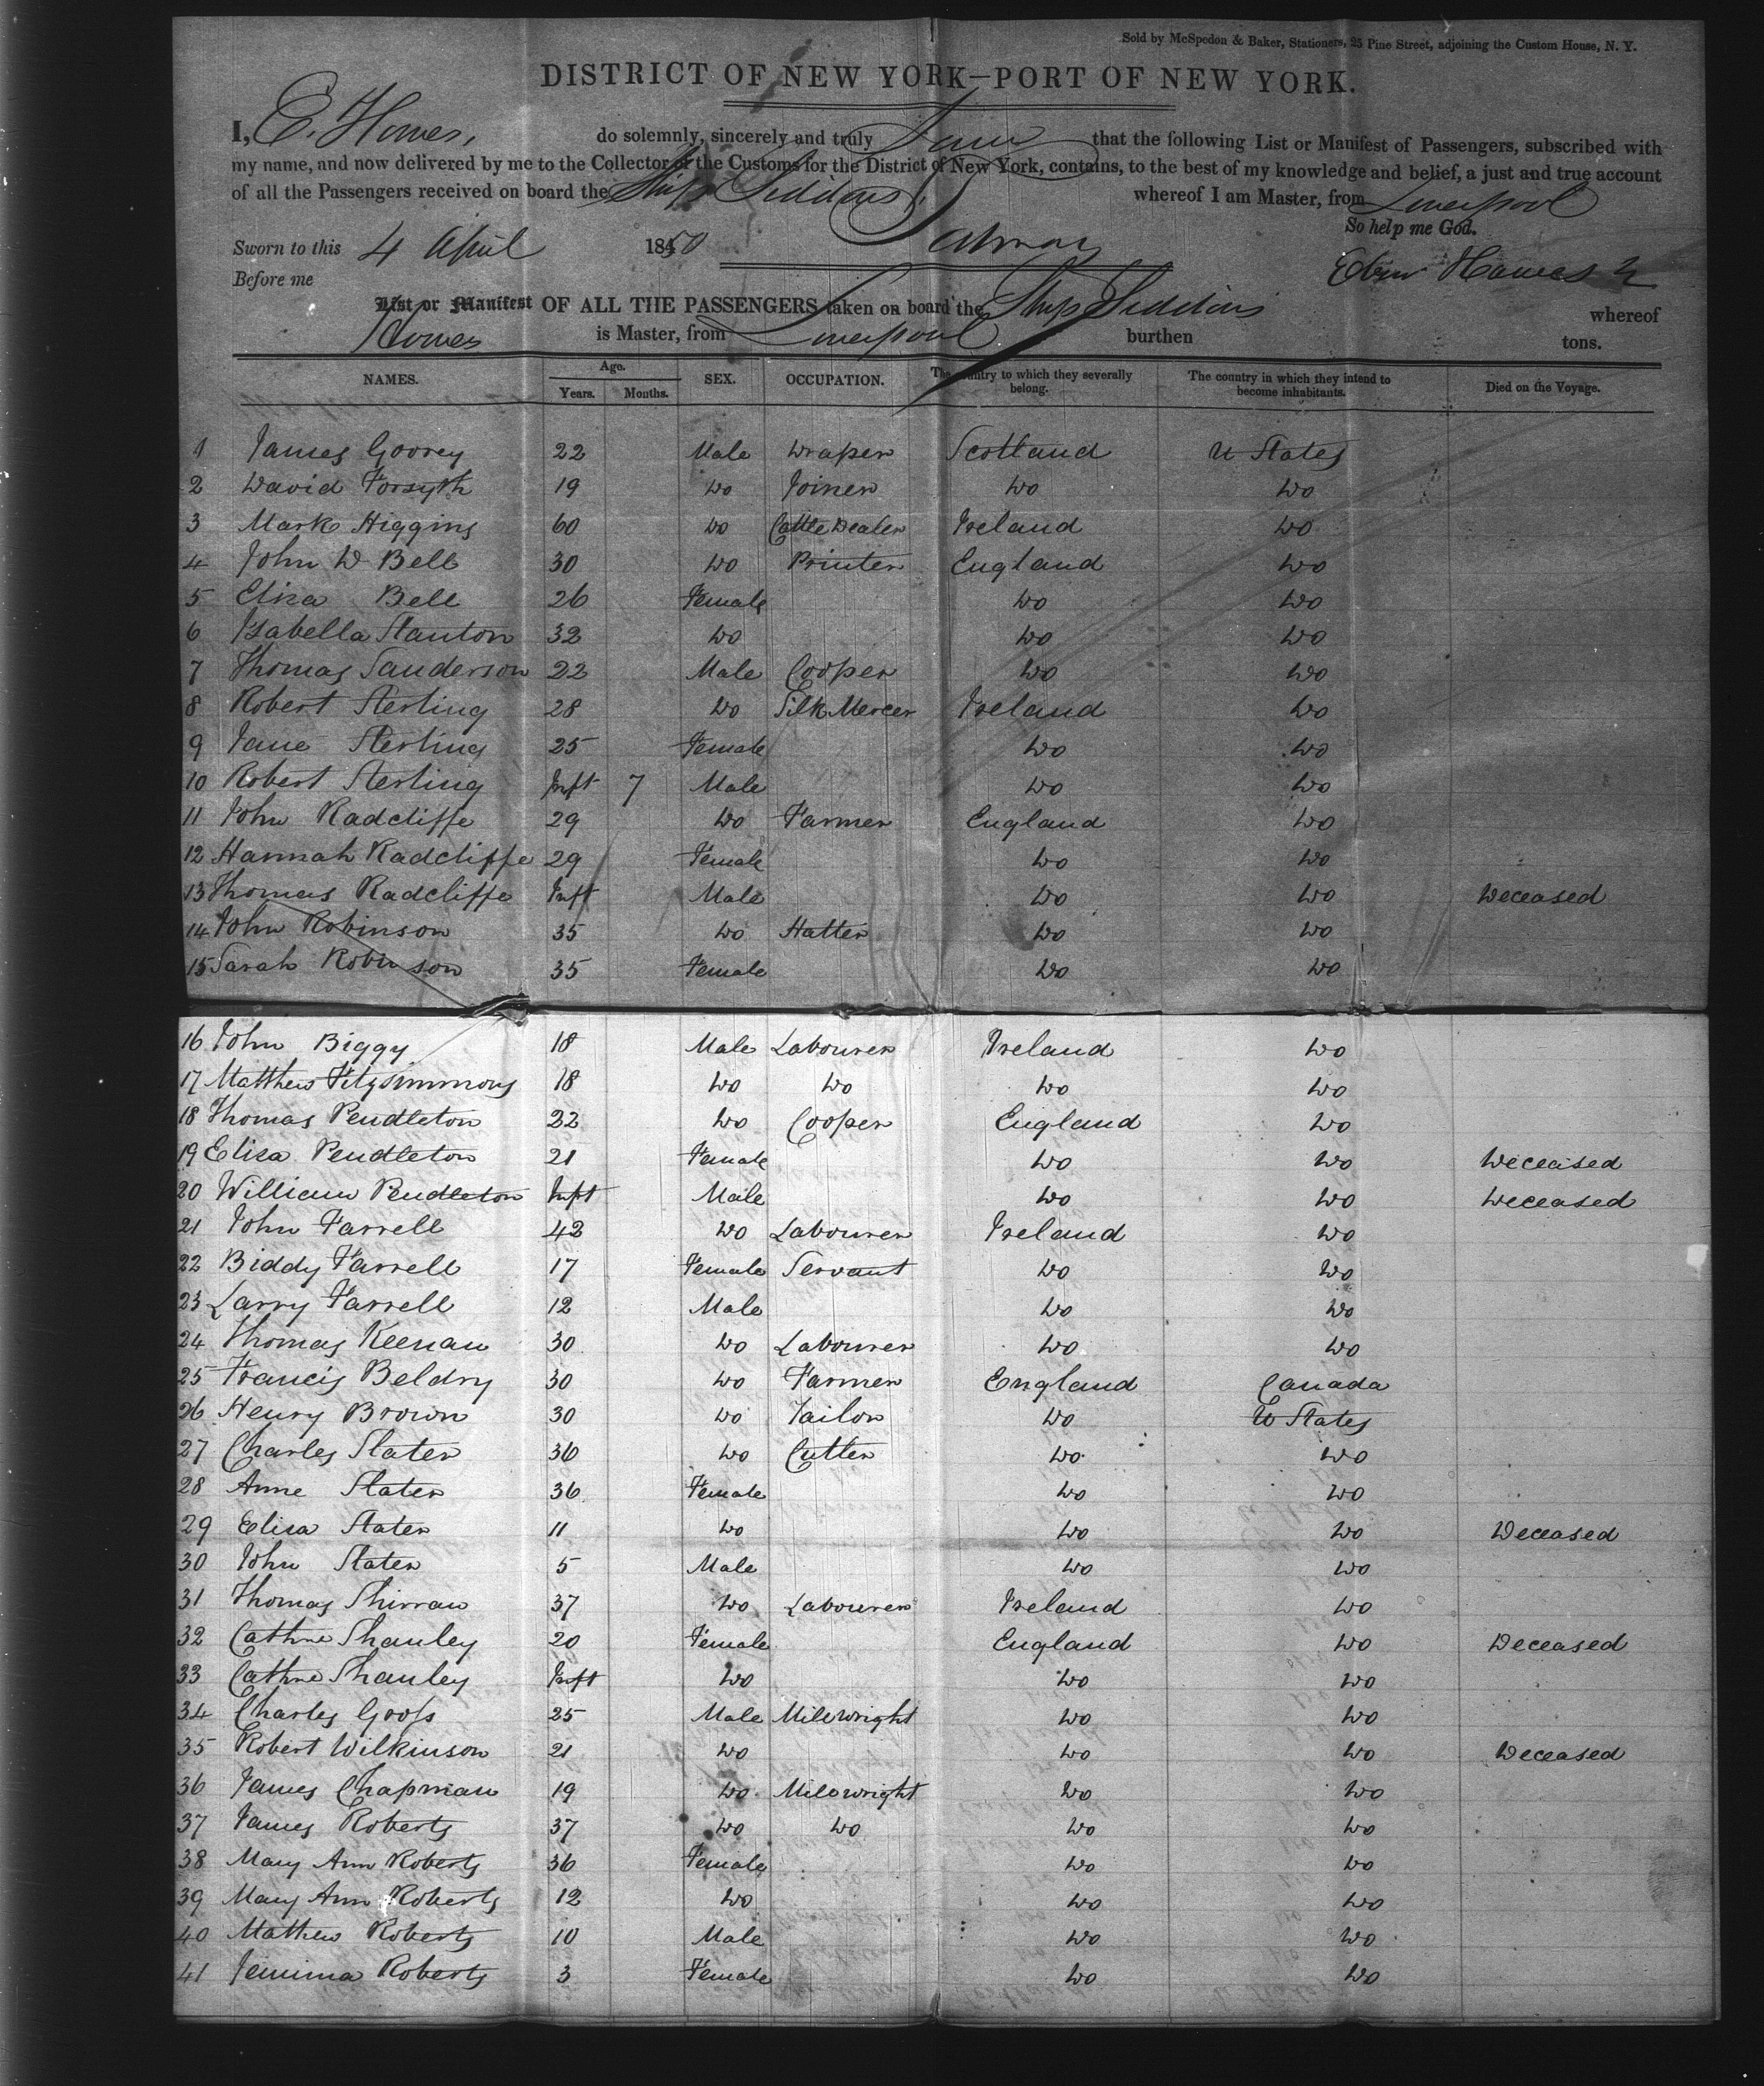 Sold by McSpedon & Baker, Stationers, 25 Pine Street, adjoining the Custom House, N. Y.
DISTRICT OF NEW YORK—PORT OF NEW YORK.
I, E. Howes, do solemnly, sincerely and truly that the following List or Manifest of Passengers, subscribed with
my name, and now delivered by me to the Collector of the Customs for the District of New York, contains, to the best of my knowledge and belief, a just and true account
of all the Passengers received on board the Ship Siddons whereof I am Master, from Liverpool
So help me God.
Sworn to this 4 April 1850
Before me
List or Manifest OF ALL THE PASSENGERS taken on board the Ship Siddons whereof
Howes is Master, from Liverpool burthen tons.
NAMES. Age. Years. Months. SEX. OCCUPATION. The country to which they severally belong. The country in which they intend to become inhabitants. Died on the Voyage.
1 James Goorey 22 Male Draper Scotland U States
2 David Forsyth 19 Do Joiner Do Do
3 Mark Higgins 60 Do Cattle Dealer Ireland Do
4 John D Bell 30 Do Printer England Do
5 Eliza Bell 26 Female Do Do
6 Isabella Stanton 32 Do Do Do
7 Thomas Sanderson 22 Male Cooper Do Do
8 Robert Sterling 28 Do Silk Mercer Ireland Do
9 Jane Sterling 25 Female Do Do
10 Robert Sterling Inft 7 Male Do Do
11 John Radcliffe 29 Do Farmer England Do
12 Hannah Radcliffe 29 Female Do Do
13 Thomas Radcliffe Inft Male Do Do Deceased
14 John Robinson 35 Do Hatter Do Do
15 Sarah Robinson 35 Female Do Do
16 John Biggy 18 Male Labourer Ireland Do
17 Matthew Fitzsimmons 18 Do Do Do Do
18 Thomas Pendleton 22 Do Cooper England Do
19 Eliza Pendleton 21 Female Do Do Deceased
20 William Pendleton Inft Male Do Do Deceased
21 John Farrell 42 Do Labourer Ireland Do
22 Biddy Farrell 17 Female Servant Do Do
23 Larry Farrell 12 Male Do Do
24 Thomas Keenan 30 Do Labourer Do Do
25 Francis Beldry 30 Do Farmer England Canada
26 Henry Brown 30 Do Tailor Do U States
27 Charles Slater 36 Do Cutler Do Do
28 Anne Slater 36 Female Do Do
29 Eliza Slater 11 Do Do Do Deceased
30 John Slater 5 Male Do Do
31 Thomas Shirran 37 Do Labourer Ireland Do
32 Cathne Shanley 20 Female England Do Deceased
33 Cathne Shanley Inft Do Do Do
34 Charles Goofs 25 Male Millwright Do Do
35 Robert Wilkinson 21 Do Do Do Deceased
36 James Chapman 19 Do Millwright Do Do
37 James Roberts 37 Do Do Do Do
38 Mary Ann Roberts 36 Female Do Do
39 Mary Ann Roberts 12 Do Do Do
40 Mathew Roberts 10 Male Do Do
41 Jemima Roberts 3 Female Do Do